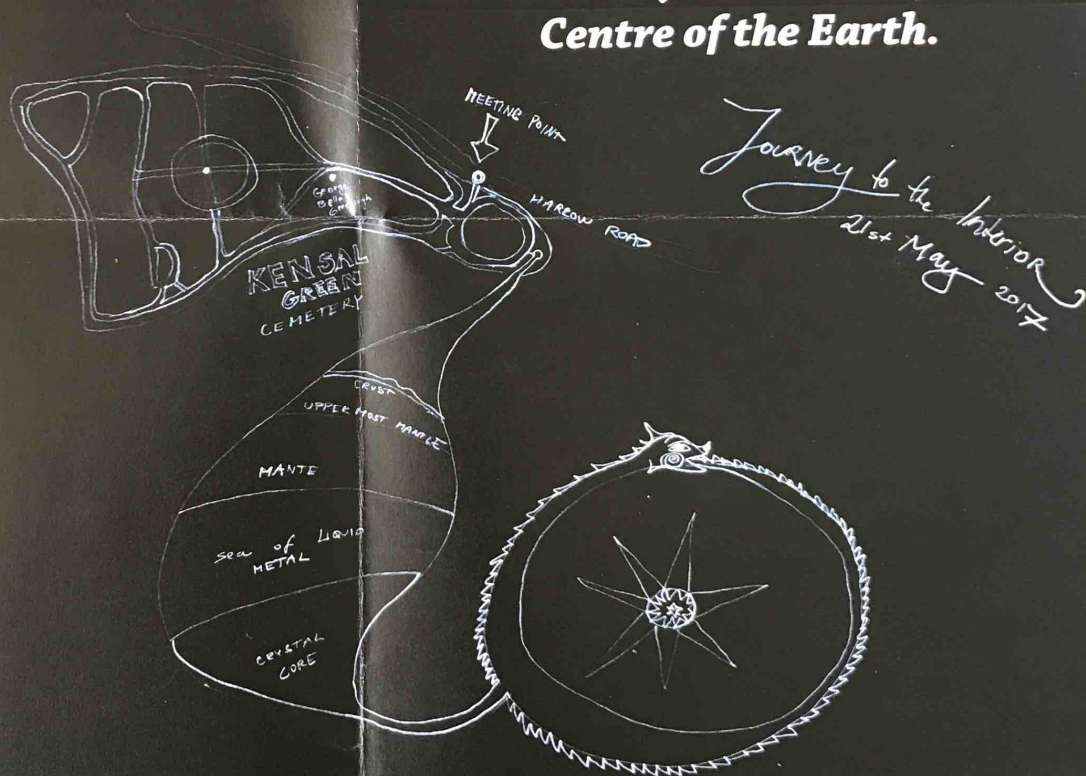 Centre of the Earth.
MEETING POINT
Journey to the Interior
21st May 2017
HARROW ROAD
George
KENSAL
GREEN
CEMETERY
CRUST
UPPERMOST MANTLE
MANTE
sea of LIQUID
METAL
CRYSTAL
CORE